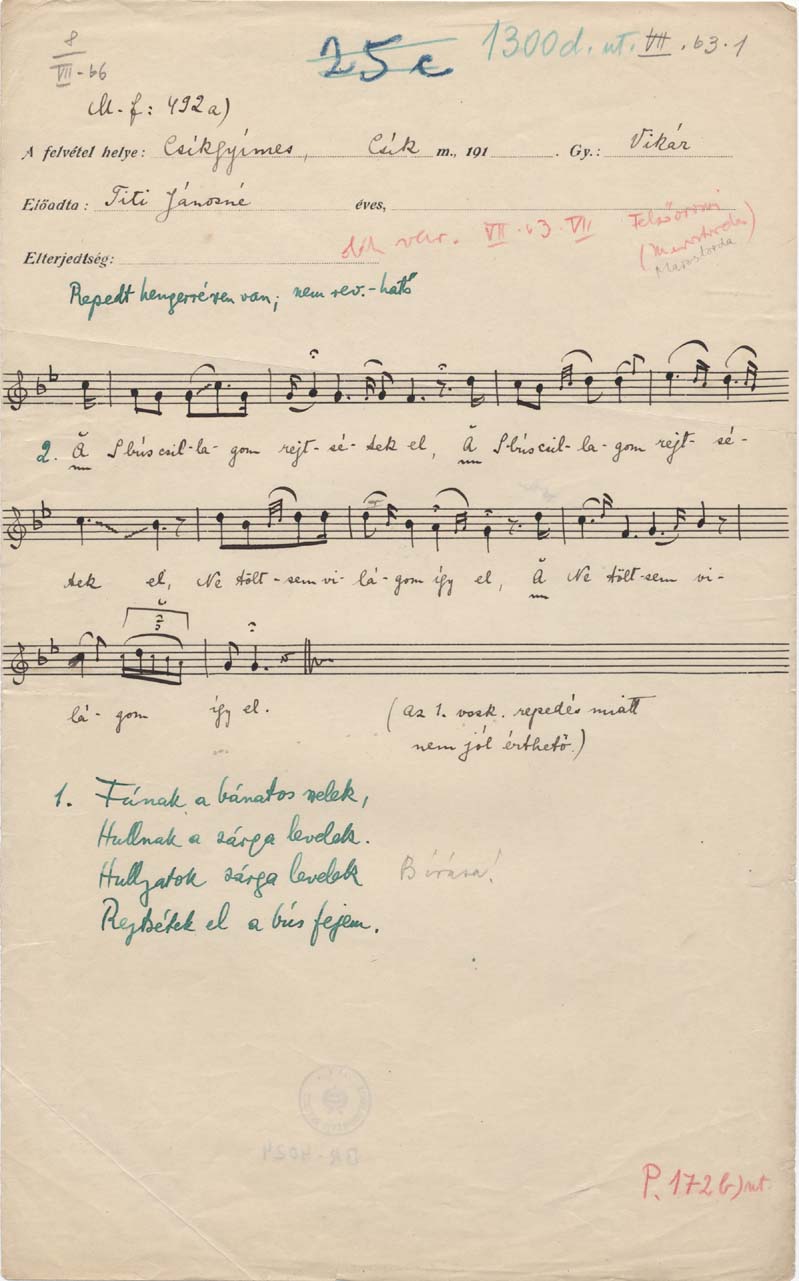 8
VII-66
25c
1300d. ut. VII.63.1
M.f: 492a)
A felvétel helye: Csíkgyímes, Csík m., 191 . Gy.: Vikár
Előadta: Titi Jánosné éves,
var. VII.63.VII Felsőorosi
(Marostorda)
Marostorda
Elterjedtség:
Repedt hengerréven van; nem rev.-ható
2. Ă S bús csil-la-gom rejt-sé-tek el, Ă S bús csil-la-gom rejt-sé-
tek el, Ne tölt-sem vi-lá-gom így el, Ă Ne tölt-sem vi-
lá-gom így el.
(az 1. vszk. repedés miatt
nem jól érthető.)
1. Fúnak a bánatos szelek,
Hullnak a sárga levelek.
Hulljatok sárga levelek
Rejtsétek el a bús fejem.
BR-4024
P. 172 b) ut.